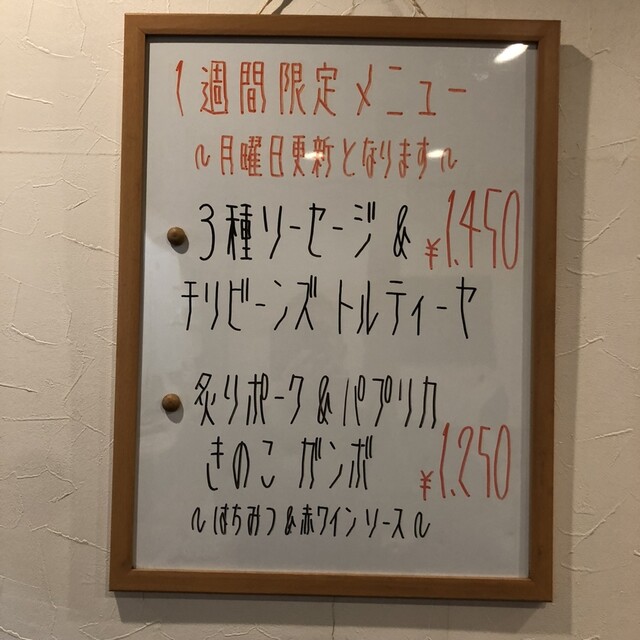 1週間限定メニュー
~月曜日更新となります~
3種ソーセージ& ¥1.450
チリビーンズ トルティーヤ
炙りポーク&パプリカ
きのこ ガンボ ¥1.250
~はちみつ&赤ワインソース~